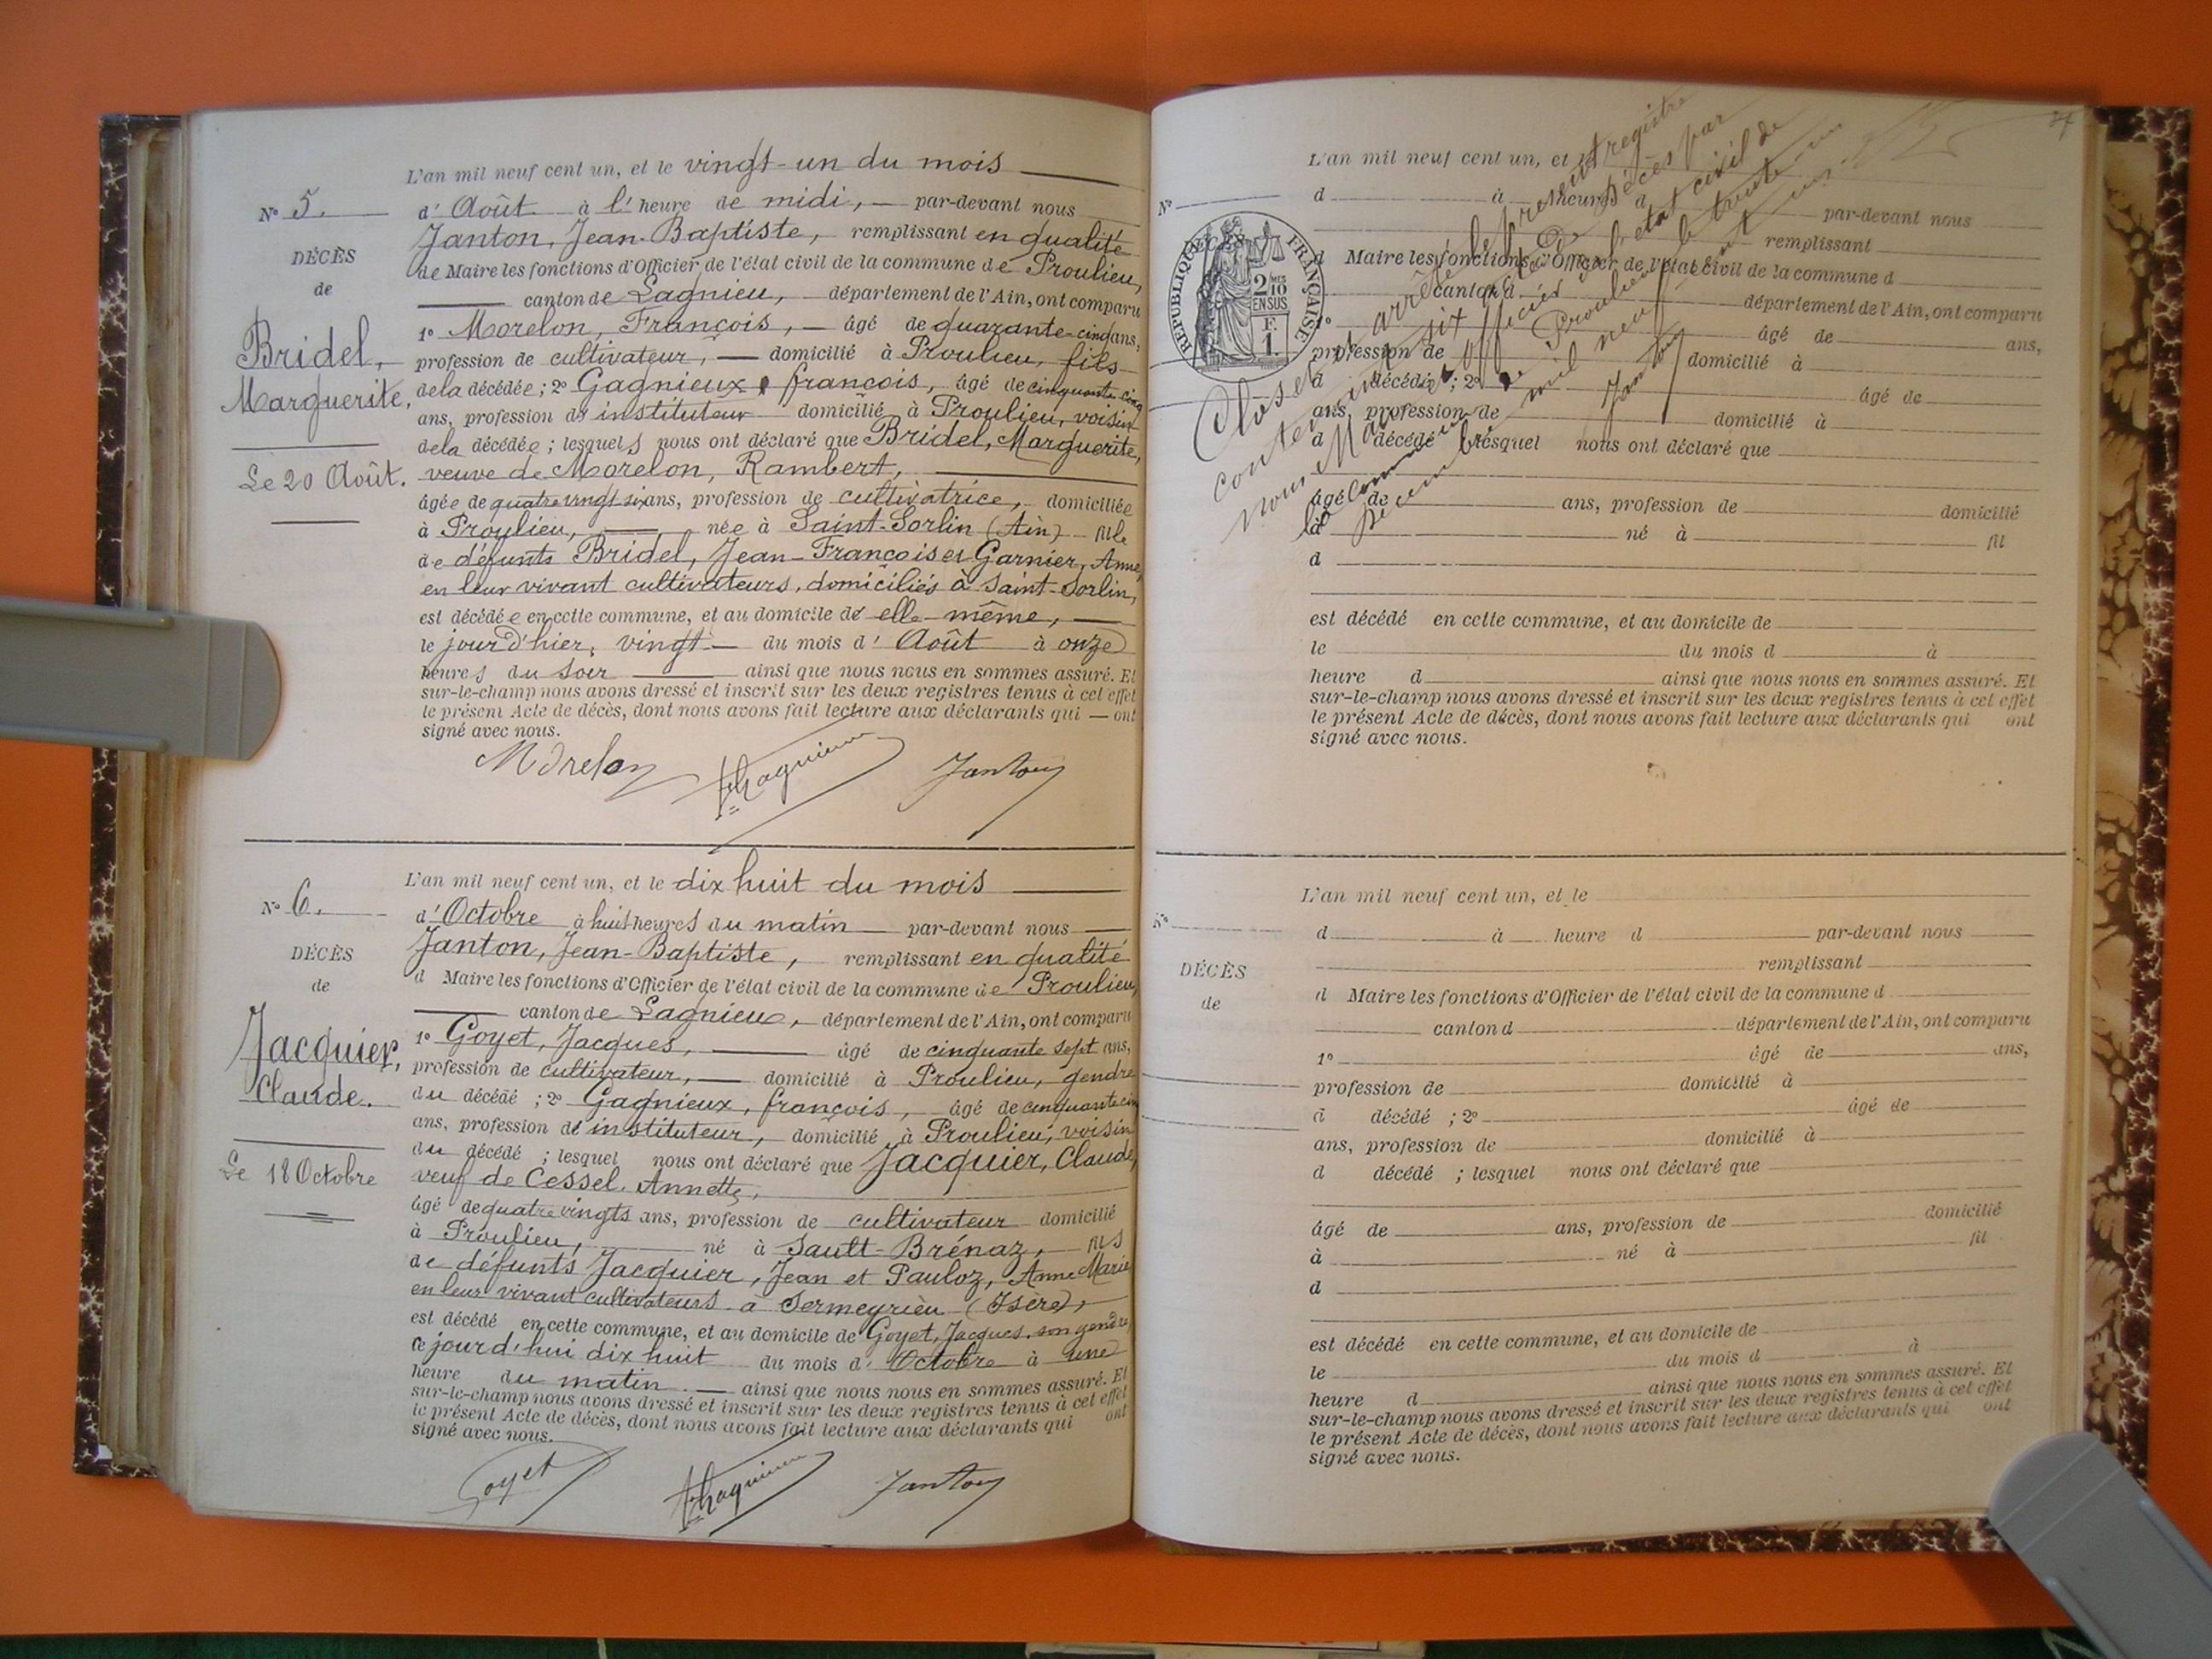 L'an mil neuf cent un, et le vingt-un du mois
N° 5.
d'Août à l'heure de midi, — par-devant nous
Janton, Jean-Baptiste, remplissant en qualité
DÉCÈS
de Maire les fonctions d'Officier de l'état civil de la commune de Proulieu,
de
canton de Lagnieu, département de l'Ain, ont comparu
1° Morelon, François, — âgé de quarante-cinq ans,
Bridel,
profession de cultivateur, — domicilié à Proulieu, fils
Marguerite,
de la décédée ; 2° Gagnieux françois, âgé de cinquante cinq
ans, profession de instituteur domicilié à Proulieu, voisin
de la décédée ; lesquels nous ont déclaré que Bridel, Marguerite,
Le 20 Août.
veuve de Morelon, Rambert,
âgée de quatre vingt six ans, profession de cultivatrice, domiciliée
à Proulieu, née à Saint-Sorlin (Ain) fille
de défunts Bridel, Jean-François et Garnier, Anne,
en leur vivant cultivateurs, domiciliés à Saint-Sorlin,
est décédée en cette commune, et au domicile de elle-même, —
le jour d'hier, vingt — du mois d'Août à onze
heures du soir — ainsi que nous nous en sommes assuré. Et
sur-le-champ nous avons dressé et inscrit sur les deux registres tenus à cet effet
le présent Acte de décès, dont nous avons fait lecture aux déclarants qui — ont
signé avec nous.
Morelon Gagnieux Janton
L'an mil neuf cent un, et le dix huit du mois
N° 6.
d'Octobre à huit heures du matin — par-devant nous —
Janton, Jean-Baptiste, remplissant en qualité
DÉCÈS
d Maire les fonctions d'Officier de l'état civil de la commune de Proulieu,
de
canton de Lagnieu, — département de l'Ain, ont comparu
1° Goyet, Jacques, — âgé de cinquante sept ans,
Jacquier,
profession de cultivateur, — domicilié à Proulieu, gendre
Claude.
du décédé ; 2° Gagnieux, françois, — âgé de cinquante cinq
ans, profession de instituteur, domicilié à Proulieu, voisin
du décédé ; lesquel nous ont déclaré que Jacquier, Claude,
Le 18 Octobre
veuf de Cessel, Annette,
âgé de quatre vingts ans, profession de cultivateur domicilié
à Proulieu, né à Sault-Brénaz, — fils
de défunts Jacquier, Jean et Pauloz, Anne Marie
en leur vivant cultivateurs à Sermeyrieu (Isère),
est décédé en cette commune, et au domicile de Goyet, Jacques, son gendre
ce jour d'hui dix huit du mois d'Octobre à une
heure du matin. — ainsi que nous nous en sommes assuré. Et
sur-le-champ nous avons dressé et inscrit sur les deux registres tenus à cet effet
le présent Acte de décès, dont nous avons fait lecture aux déclarants qui ont
signé avec nous.
Goyet Gagnieux Janton
Clos et arrêté le présent registre
contenant six actes de Décès par
nous Maire et officier de l'état civil de
la commune de Proulieu le trente un
Décembre mil neuf cent un.
Janton
RÉPUBLIQUE FRANÇAISE
2/10 MES EN SUS
F. 1.
L'an mil neuf cent un, et le
N°
d à heure d par-devant nous
remplissant
d Maire les fonctions d'Officier de l'état civil de la commune d
canton d département de l'Ain, ont comparu
1° âgé de ans,
profession de domicilié à
d décédé ; 2° âgé de
ans, profession de domicilié à
d décédé ; lesquel nous ont déclaré que
âgé de ans, profession de domicilié
à né à fil
d
est décédé en cette commune, et au domicile de
le du mois d à
heure d ainsi que nous nous en sommes assuré. Et
sur-le-champ nous avons dressé et inscrit sur les deux registres tenus à cet effet
le présent Acte de décès, dont nous avons fait lecture aux déclarants qui ont
signé avec nous.
L'an mil neuf cent un, et le
N°
d à heure d par-devant nous
remplissant
DÉCÈS
d Maire les fonctions d'Officier de l'état civil de la commune d
de
canton d département de l'Ain, ont comparu
1° âgé de ans,
profession de domicilié à
d décédé ; 2° âgé de
ans, profession de domicilié à
d décédé ; lesquel nous ont déclaré que
âgé de ans, profession de domicilié
à né à fil
d
est décédé en cette commune, et au domicile de
le du mois d à
heure d ainsi que nous nous en sommes assuré. Et
sur-le-champ nous avons dressé et inscrit sur les deux registres tenus à cet effet
le présent Acte de décès, dont nous avons fait lecture aux déclarants qui ont
signé avec nous.